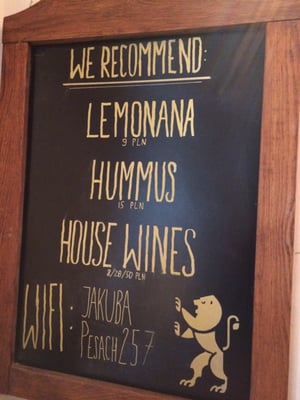 WE RECOMMEND:
LEMONANA
9 PLN
HUMMUS
15 PLN
HOUSE WINES
8/28/50 PLN
WIFI: JAKUBA
PESACH257